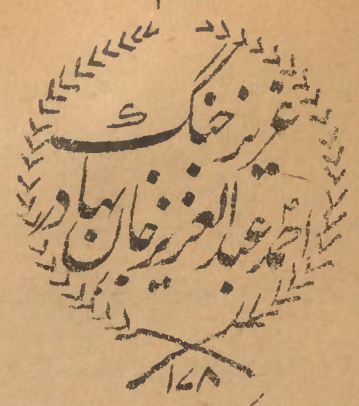 عزیز جنگ
احمد عبدالعزیز خان بہادر
۱۷۸